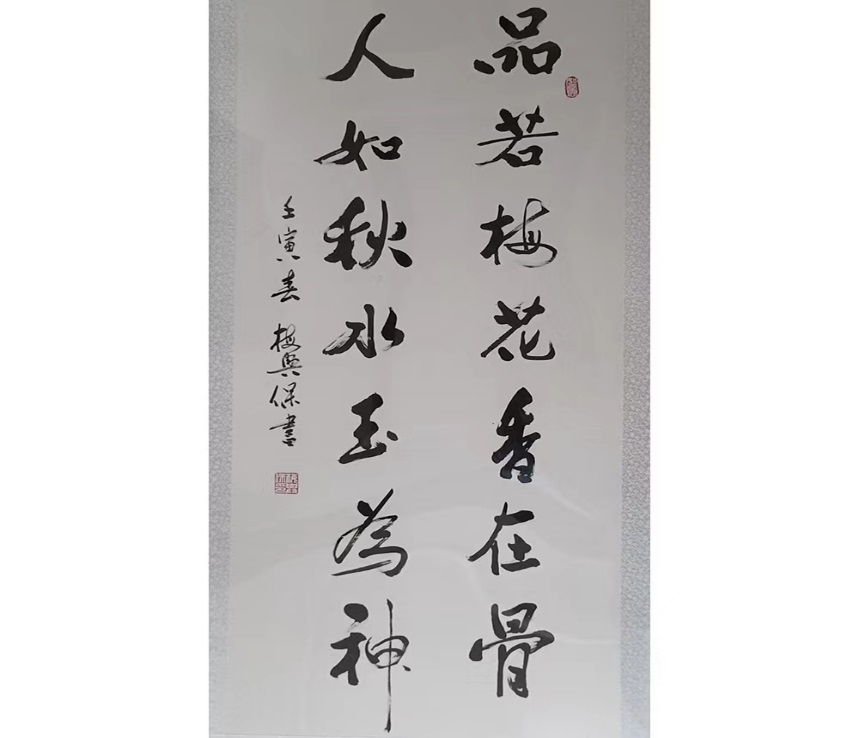 品若梅花香在骨
人如秋水玉為神
壬寅春 梅興保書